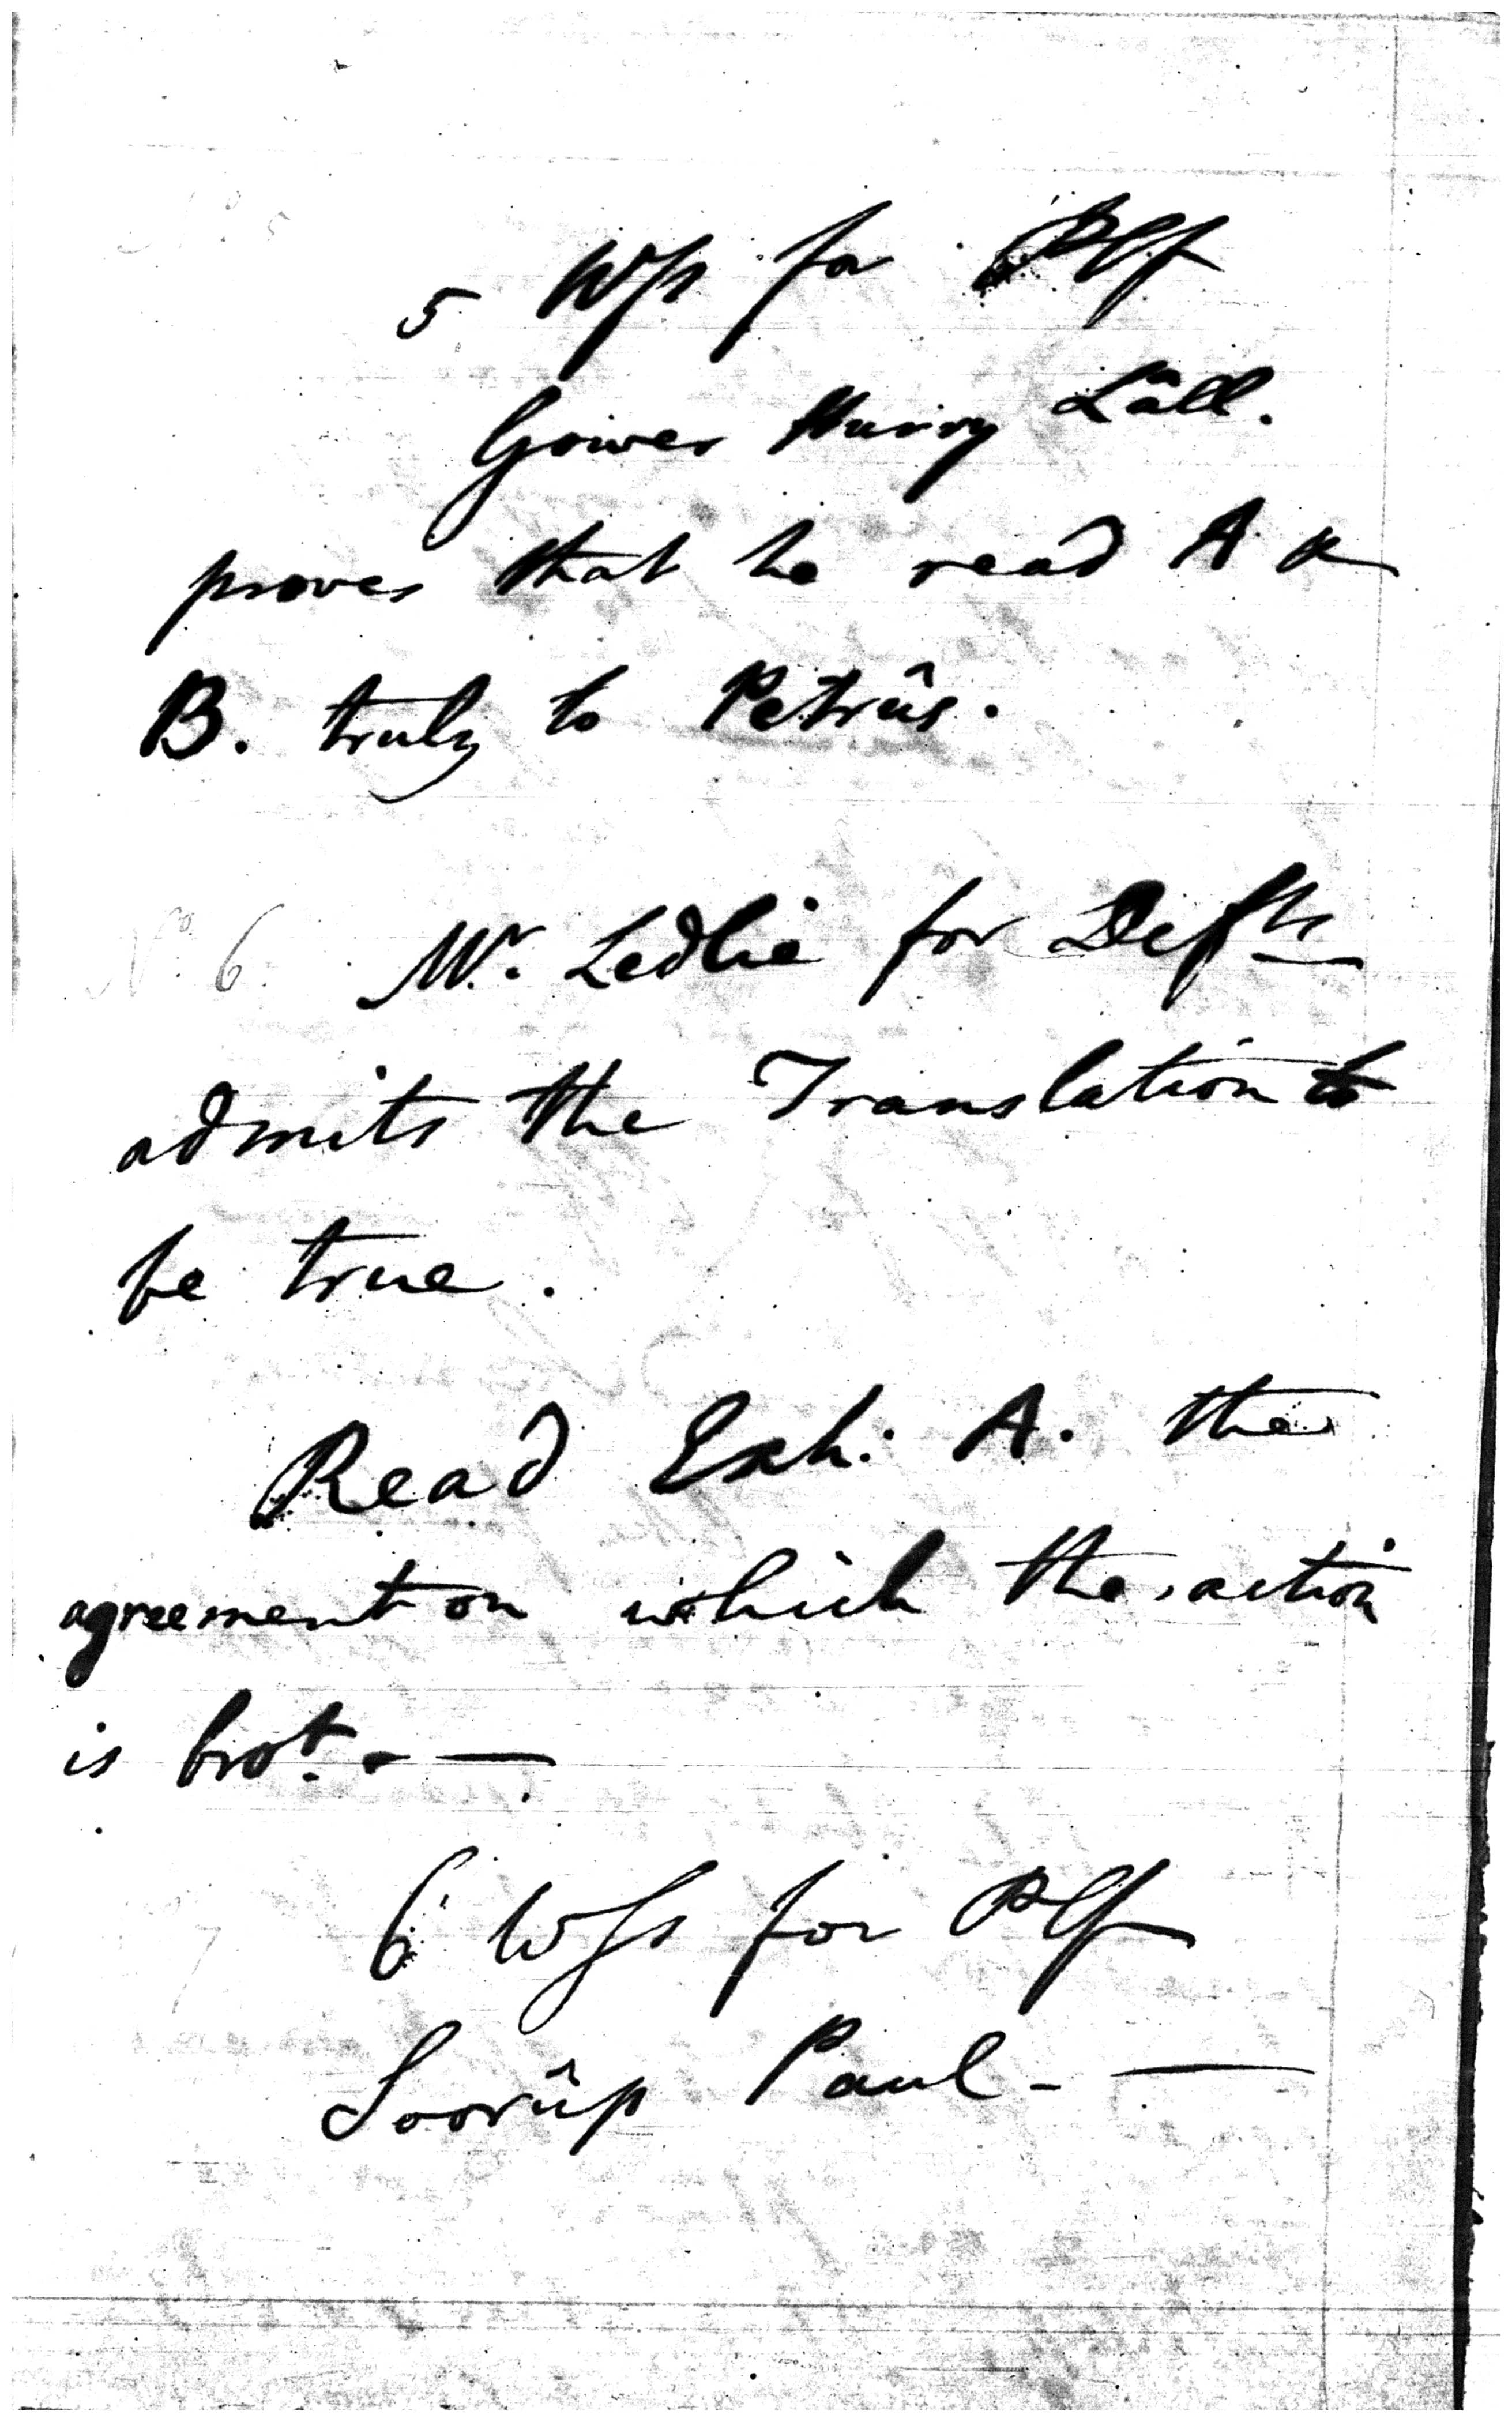 No. 5
5 Wss for Plf
Gower Hurry Lâll.
proves that he read A &
B. truly to Petrûs.
No. 6. Mr. Ledlie for Defts
admits the Translation to
be true.
Read Exh. A. the
agreement on which the action
is brot. - —
7
6 Wss for Plf
Soorûp Paul - —